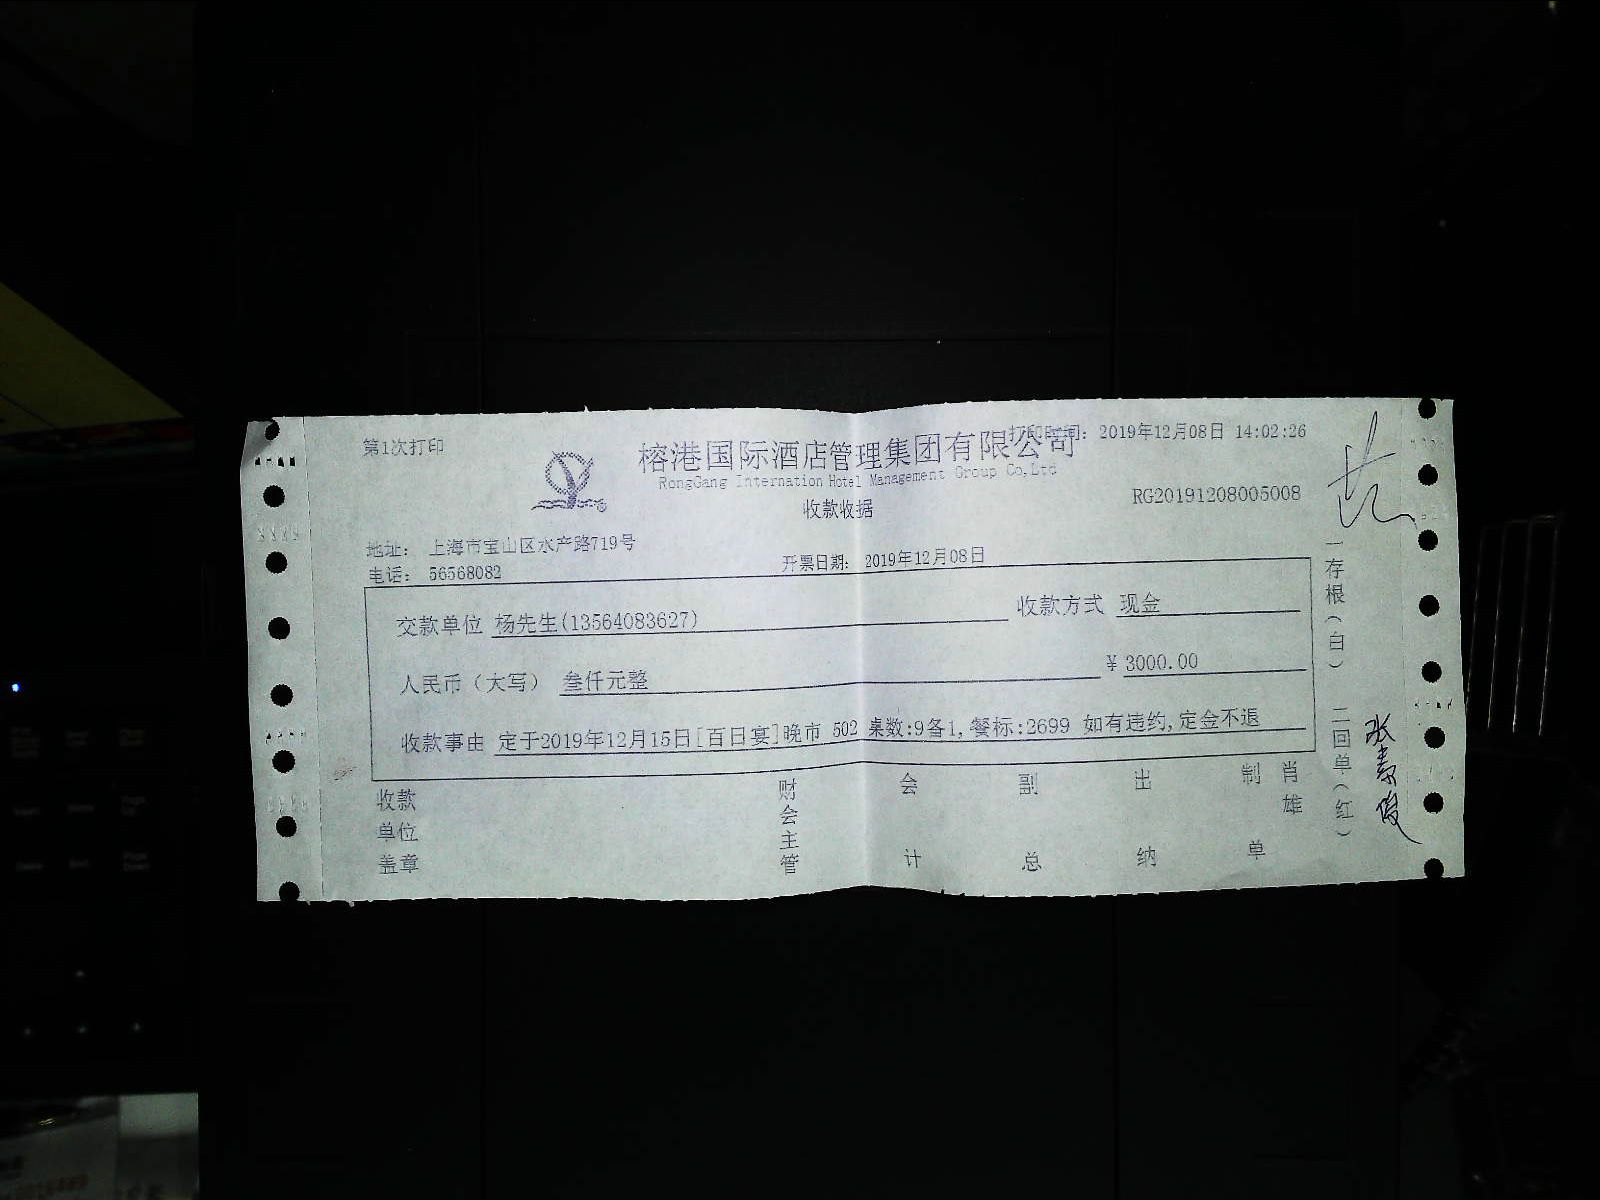 第1次打印
打印时间: 2019年12月08日 14:02:26
榕港国际酒店管理集团有限公司
RongGang Internation Hotel Management Group Co,Ltd
收款收据
RG20191208005008
地址: 上海市宝山区水产路719号
电话: 56568082
开票日期: 2019年12月08日
交款单位 杨先生(13564083627)
收款方式 现金
人民币(大写) 叁仟元整
¥ 3000.00
收款事由 定于2019年12月15日[百日宴]晚市 502 桌数:9备1,餐标:2699 如有违约,定金不退
收款单位盖章
财会主管
会计
副总
出纳
制单
肖雄
一存根(白)
二回单(红)